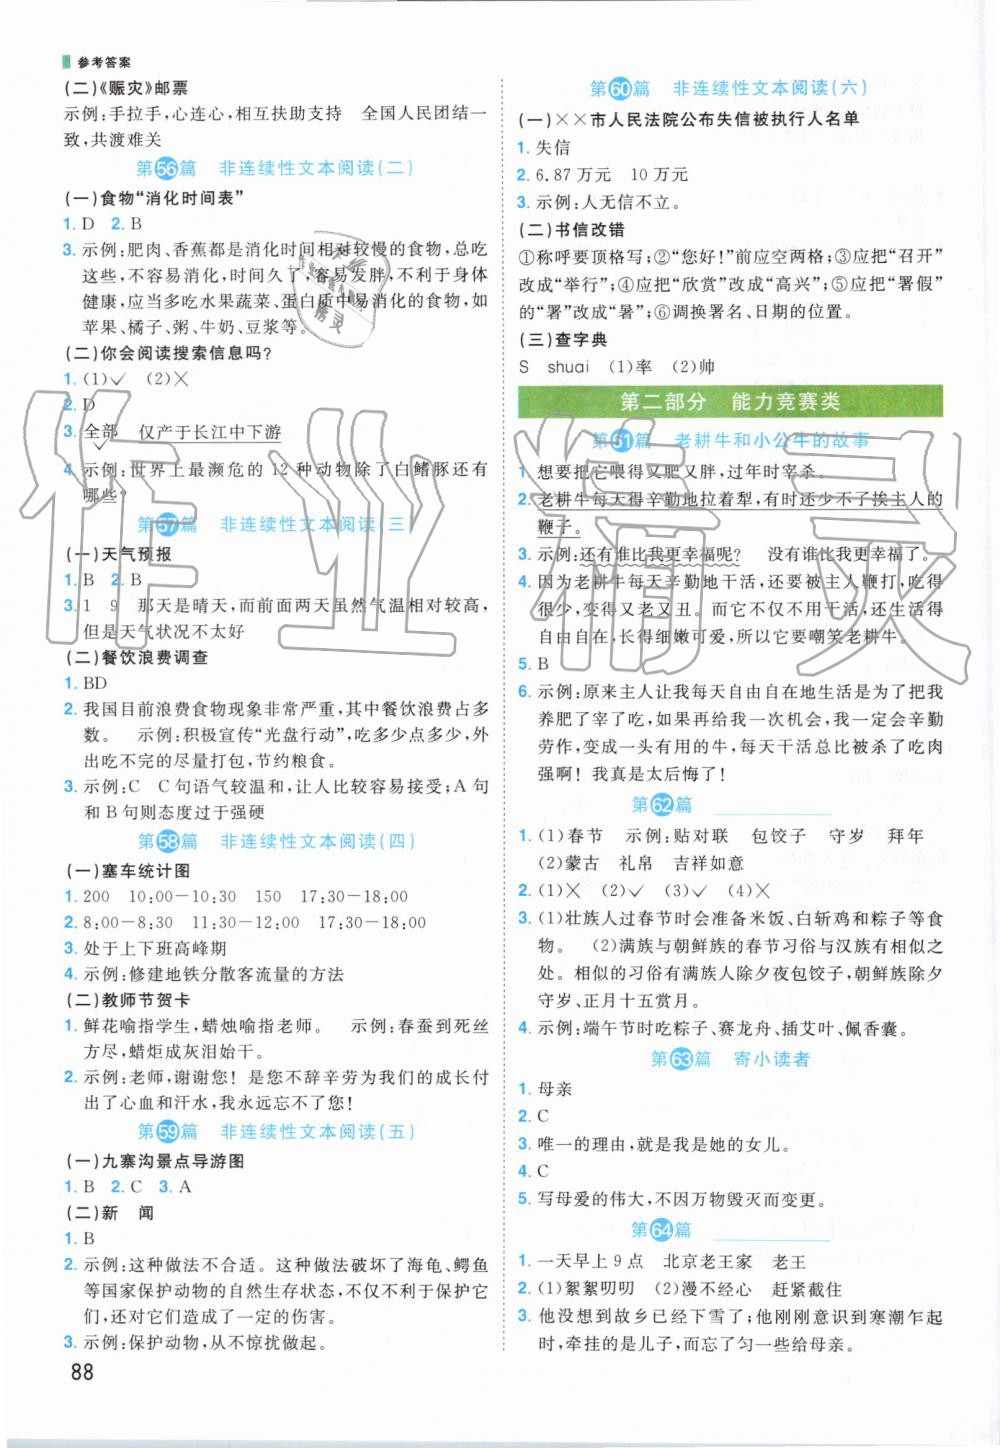 参考答案
(二)《赈灾》邮票
示例:手拉手,心连心,相互扶助支持　全国人民团结一
致,共渡难关
第56篇　非连续性文本阅读(二)
(一)食物“消化时间表”
1. D　2. B
3. 示例:肥肉、香蕉都是消化时间相对较慢的食物,总吃
这些,不容易消化,时间久了,容易发胖,不利于身体
健康,应当多吃水果蔬菜、蛋白质中易消化的食物,如
苹果、橘子、粥、牛奶、豆浆等。
(二)你会阅读搜索信息吗?
1. (1)✓　(2)✕
2. D
3. 全部　仅产于长江中下游
4. 示例:世界上最濒危的 12 种动物除了白鳍豚还有
哪些?
第57篇　非连续性文本阅读(三)
(一)天气预报
1. B　2. B
3. 1　9　那天是晴天,而前面两天虽然气温相对较高,
但是天气状况不太好
(二)餐饮浪费调查
1. BD
2. 我国目前浪费食物现象非常严重,其中餐饮浪费占多
数。　示例:积极宣传“光盘行动”,吃多少点多少,外
出吃不完的尽量打包,节约粮食。
3. 示例:C　C 句语气较温和,让人比较容易接受;A 句
和 B 句则态度过于强硬
第58篇　非连续性文本阅读(四)
(一)塞车统计图
1. 200　10:00—10:30　150　17:30—18:00
2. 8:00—8:30　11:30—12:00　17:30—18:00
3. 处于上下班高峰期
4. 示例:修建地铁分散客流量的方法
(二)教师节贺卡
1. 鲜花喻指学生,蜡烛喻指老师。　示例:春蚕到死丝
方尽,蜡炬成灰泪始干。
2. 示例:老师,谢谢您！是您不辞辛劳为我们的成长付
出了心血和汗水,我永远忘不了您!
第59篇　非连续性文本阅读(五)
(一)九寨沟景点导游图
1. B　2. C　3. A
(二)新　闻
1. B
2. 示例:这种做法不合适。这种做法破坏了海龟、鳄鱼
等国家保护动物的自然生存状态,不仅不能保护它
们,还对它们造成了一定的伤害。
3. 示例:保护动物,从不惊扰做起。
88
第60篇　非连续性文本阅读(六)
(一)✕✕市人民法院公布失信被执行人名单
1. 失信
2. 6.87 万元　10 万元
3. 示例:人无信不立。
(二)书信改错
①称呼要顶格写;②“您好!”前应空两格;③应把“召开”
改成“举行”;④应把“欣赏”改成“高兴”;⑤应把“署假”
的“署”改成“暑”;⑥调换署名、日期的位置。
(三)查字典
S　shuai　(1)率　(2)帅
第二部分　能力竞赛类
第61篇　老耕牛和小公牛的故事
1. 想要把它喂得又肥又胖,过年时宰杀。
2. 老耕牛每天得辛勤地拉着犁,有时还少不了挨主人的
鞭子。
3. 示例:还有谁比我更幸福呢?　没有谁比我更幸福了。
4. 因为老耕牛每天辛勤地干活,还要被主人鞭打,吃得
很少,变得又老又丑。而它不仅不用干活,还过得自由
自在,长得细嫩可爱,所以它要嘲笑老耕牛。
5. B
6. 示例:原来主人让我每天自由自在地生活是为了把我
养肥了宰了吃,如果再给我一次机会,我一定会辛勤
劳作,变成一头有用的牛,每天干活总比被杀了吃肉
强啊！我真是太后悔了!
第62篇
1. (1)春节　示例:贴对联　包饺子　守岁　拜年
(2)蒙古　礼帛　吉祥如意
2. (1)✕　(2)✓　(3)✓　(4)✕
3. (1)壮族人过春节时会准备米饭、白斩鸡和粽子等食
物。　(2)满族与朝鲜族的春节习俗与汉族有相似之
处。相似的习俗有满族人除夕夜包饺子,朝鲜族除夕
守岁、正月十五赏月。
4. 示例:端午节时吃粽子、赛龙舟、插艾叶、佩香囊。
第63篇　寄小读者
1. 母亲
2. C
3. 唯一的理由,就是我是她的女儿。
4. C
5. 写母爱的伟大,不因万物毁灭而变更。
第64篇
1. 一天早上 9 点　北京老王家　老王
2. (1)絮絮叨叨　(2)漫不经心　赶紧截住
3. 他没想到故乡已经下雪了;他刚刚意识到寒潮乍起
时,牵挂的是儿子,而忘了匀一些给母亲。
作业精灵